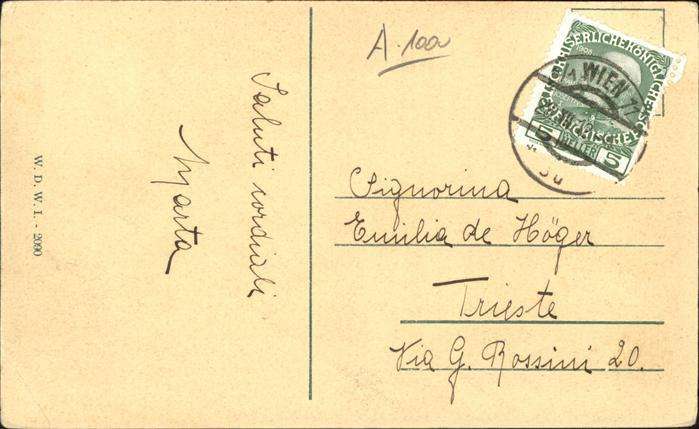 W. D. W. I. - 2090
Saluti cordiali
Marta
A. 100
KAISERLICHE KÖNIGLICHE
1908
WIEN
5 HELLER 5
Signorina
Emilia de Höger
Trieste
Via G. Rossini 20.